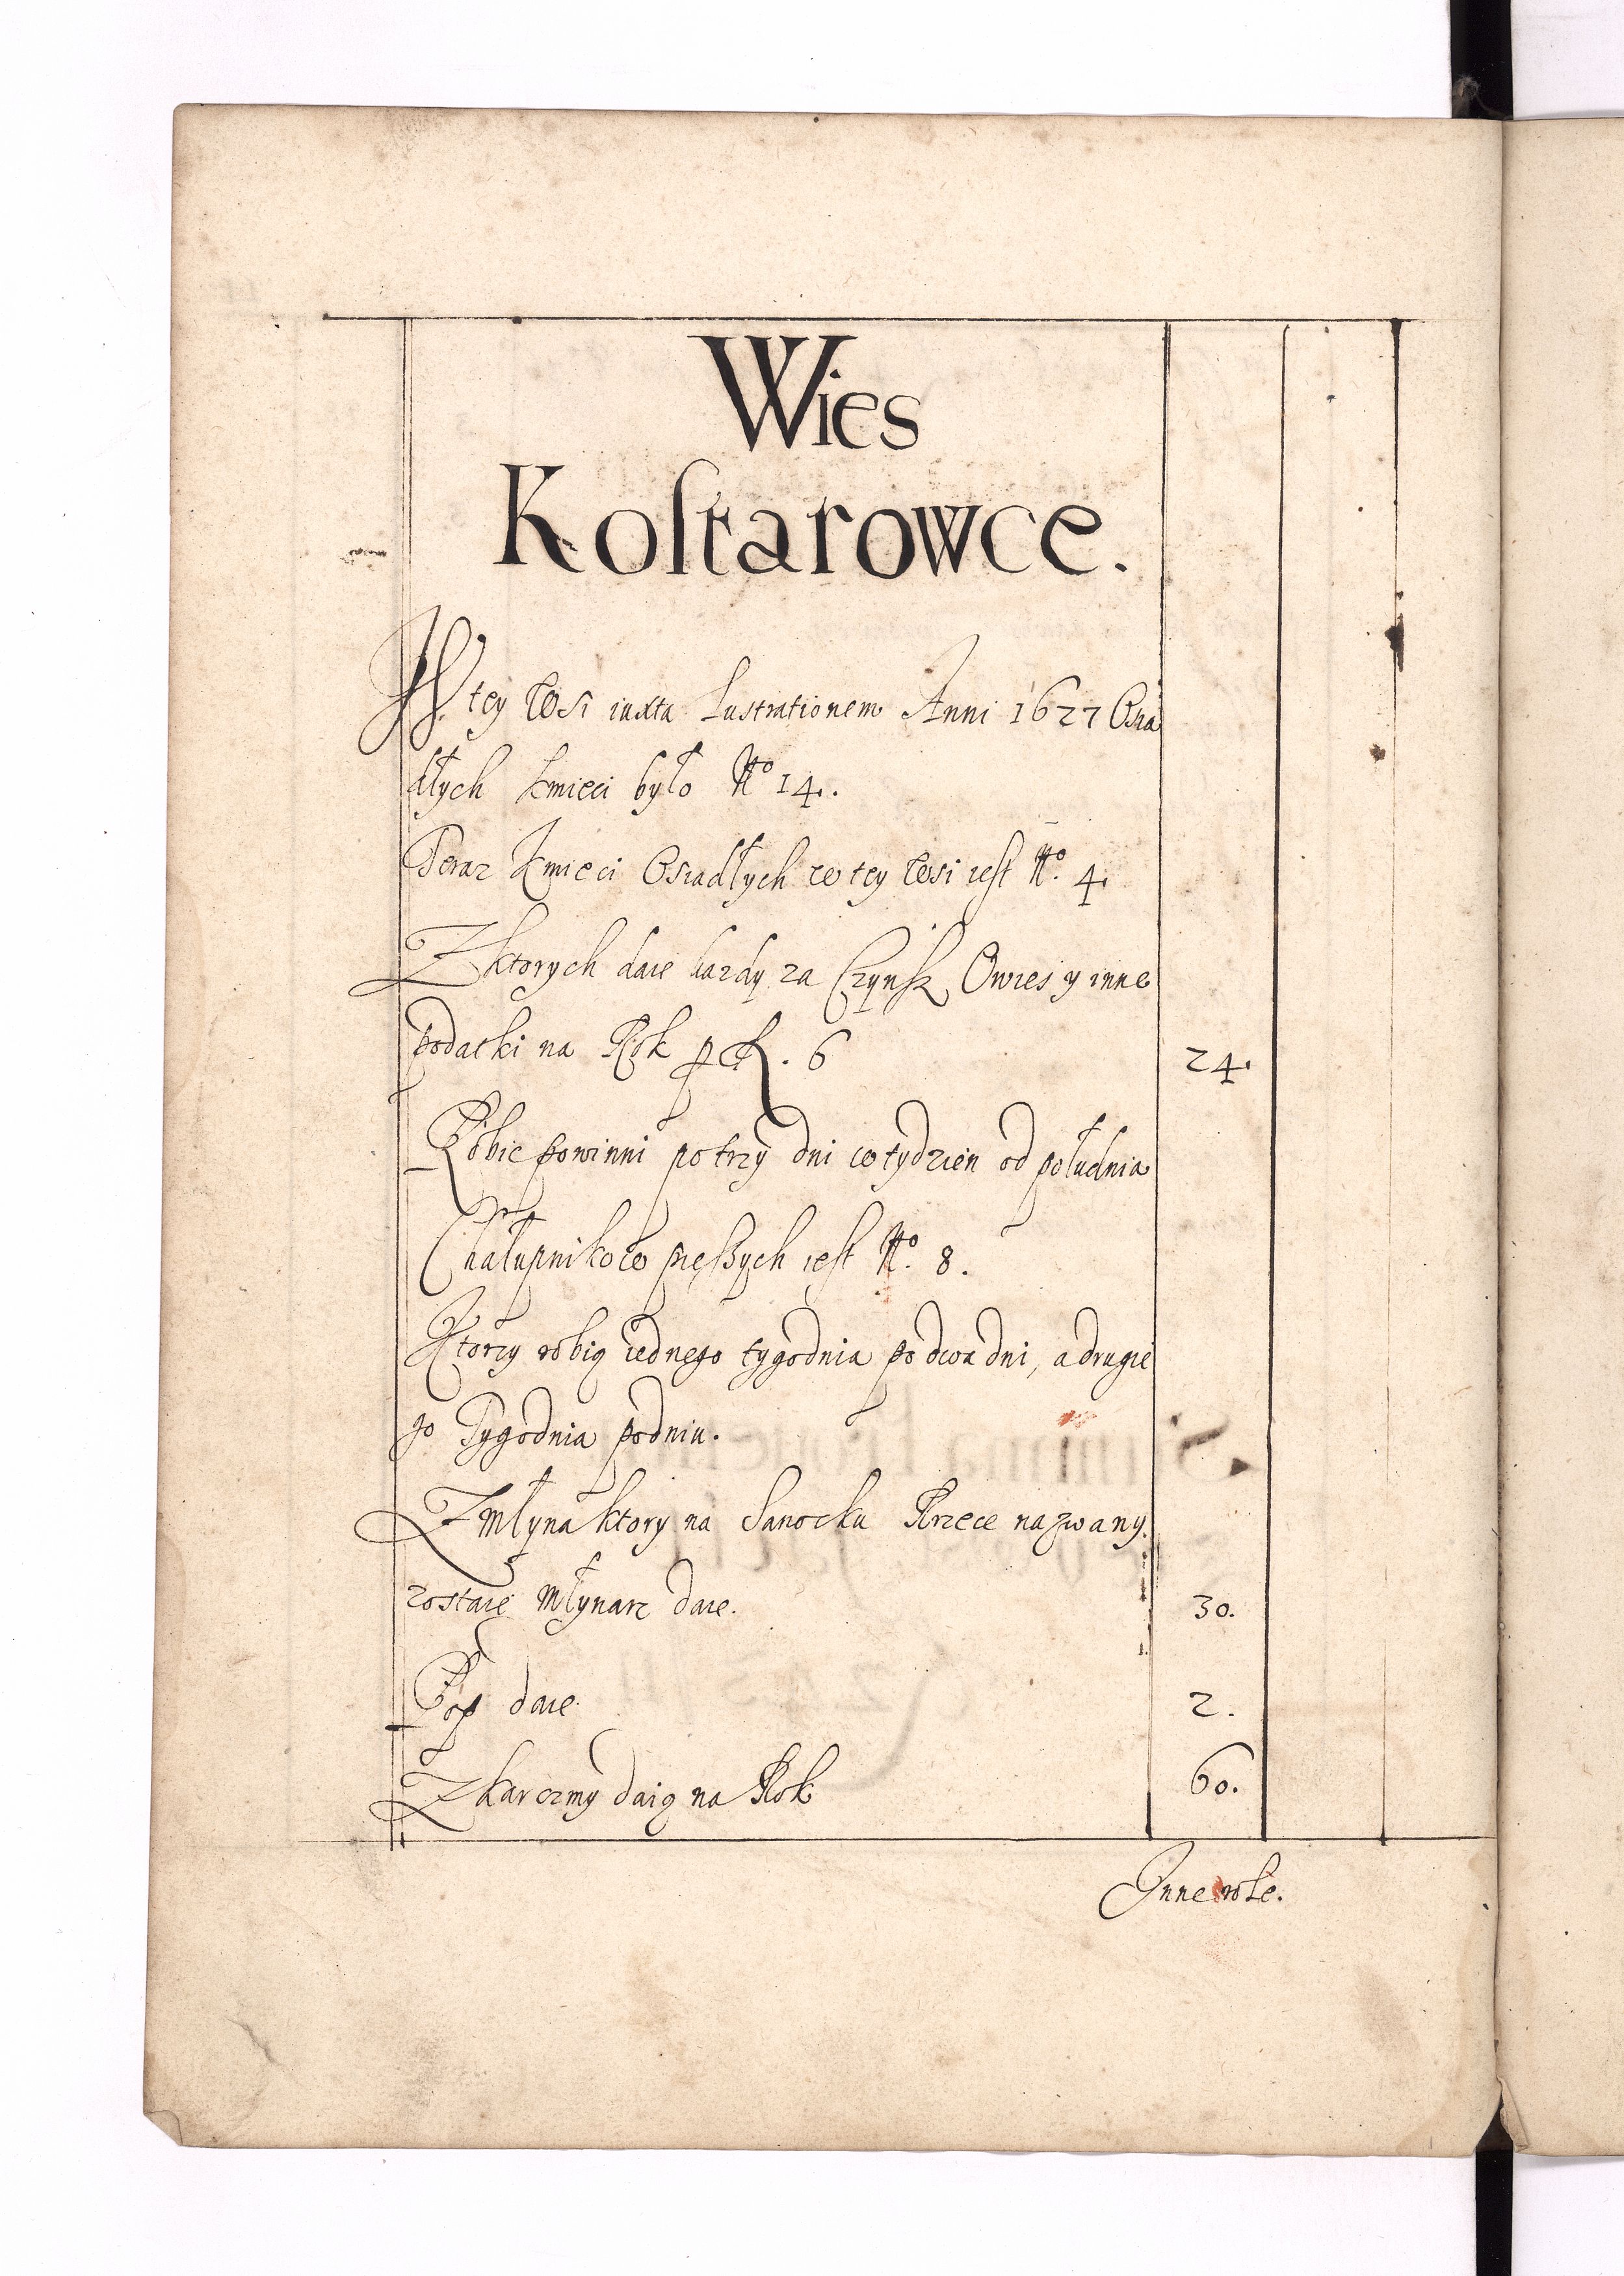 Wies
Kostarowce.
W tey Wsi iuxta Lustrationem Anni 1627 Osia
dłych kmieci było No 14.
Teraz Kmieci Osiadłych w tey Wsi iest No. 4.
Z ktorych daie kazdy za Czynsz Owies y inne
podatki na Rok p fl. 6
24.
Robic powinni po trzy dni w tydzien od południa
Chałupnikow pieszych iest No. 8.
Ktorzy robią iednego tygodnia po dwa dni, a drugie
go Tygodnia po dniu.
Z Młyna ktory na Sanocku Rzece nazwany
zostaie Młynarz daie.
30.
Pop daie.
2.
Z karczmy daią na Rok
60.
Inne role.